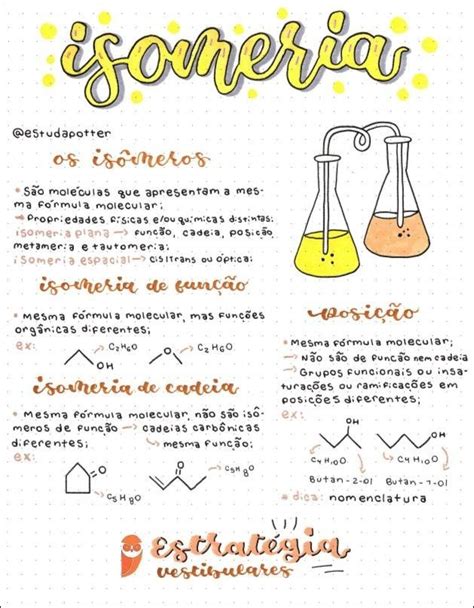 isomeria
@estudapotter
os isômeros
• São moléculas que apresentam a mes-
ma fórmula molecular;
→ Propriedades físicas e/ou químicas distintas;
isomeria plana → função, cadeia, posição,
metameria e tautomeria;
isomeria espacial → cis/trans ou óptica;
isomeria de função
• Mesma fórmula molecular, mas funções
orgânicas diferentes;
ex:
C2H6O
OH
O
C2H6O
isomeria de cadeia
• Mesma fórmula molecular, não são isô-
meros de função → cadeias carbônicas
diferentes;
→ mesma função;
ex:
O
C5H8O
O
C5H8O
posição
• Mesma fórmula molecular;
→ Não são de função nem cadeia
→ Grupos funcionais ou insa-
turações ou ramificações em
posições diferentes;
ex:
OH
C4H10O
Butan-2-ol
OH
C4H10O
Butan-1-ol
• dica: nomenclatura
Estratégia
vestibulares